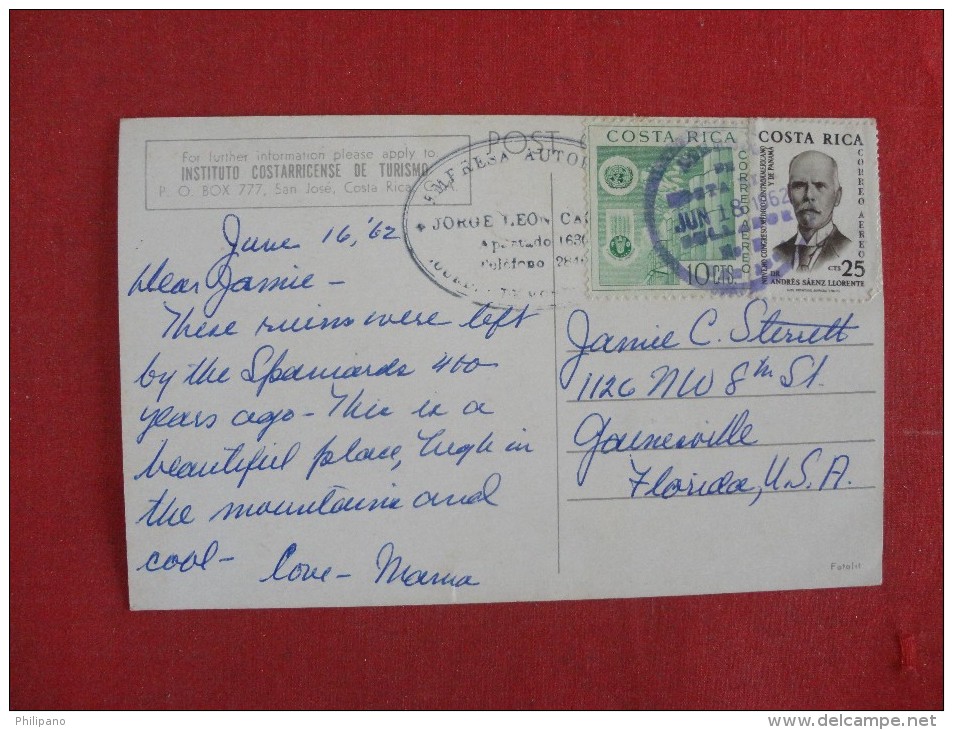 For further information please apply to
INSTITUTO COSTARRICENSE DE TURISMO
P. O. BOX 777, San José, Costa Rica
POST
EMPRESA AUTO
JORGE LEON
Apartado
Teléfono
COSTA RICA
CORREO AEREO
10 CTS.
JUN 18 1962
COSTA RICA
CORREO AEREO
NOVENO CONGRESO MEDICO CENTROAMERICANO
Y DE PANAMÁ
CTS 25
DR.
ANDRÉS SÁENZ LLORENTE
June 16, '62
Dear Jamie -
These ruins were left
by the Spaniards 400
years ago - This is a
beautiful place, high in
the mountains and
cool -
Love - Mama
Jamie C. Sterrett
1126 NW 8th St.
Gainesville
Florida, U.S.A.
Fotolit
Philipano
www.delcampe.net